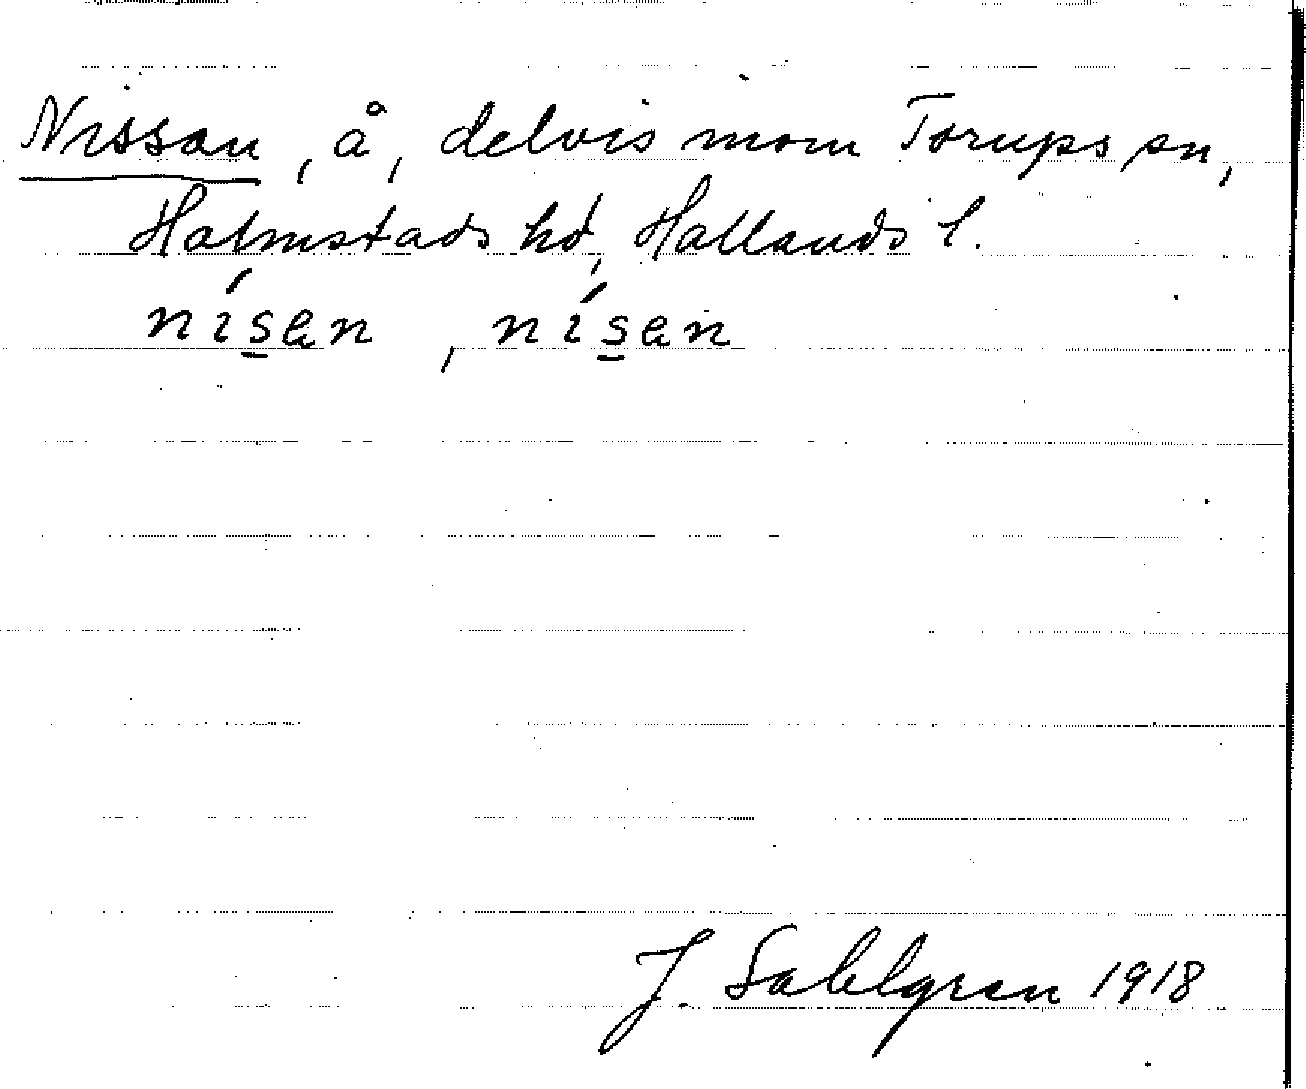 Nissan, å, delvis inom Torups sn,
Halmstads hd, Hallands l.
nísa̲n, nísa̲n
J. Sahlgren 1918